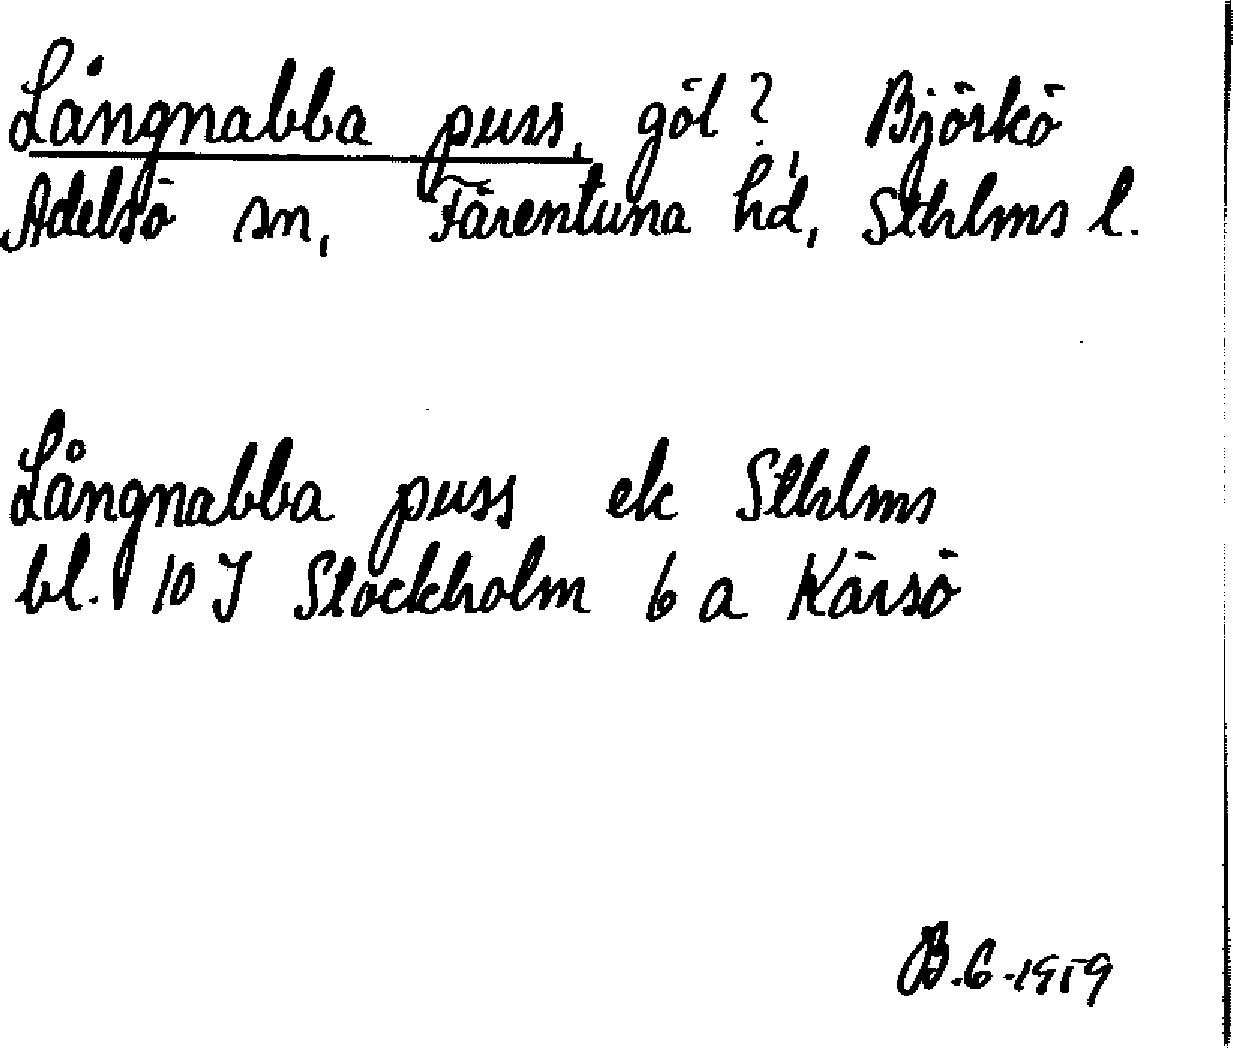 Långnabba puss, göl? Björkö
Adelsö sn, Färentuna hd, Sthlms l.
Långnabba puss ek Sthlms
bl. 10 I Stockholm 6 a Kärsö
B.G-1959